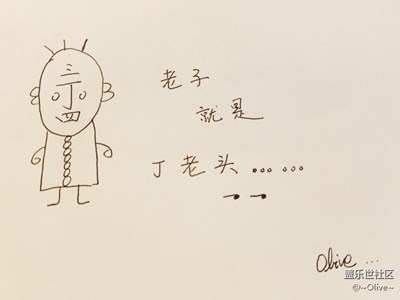 三
丁
四
老子
就是
丁老头……
Olive...
盖乐世社区
@~Olive~